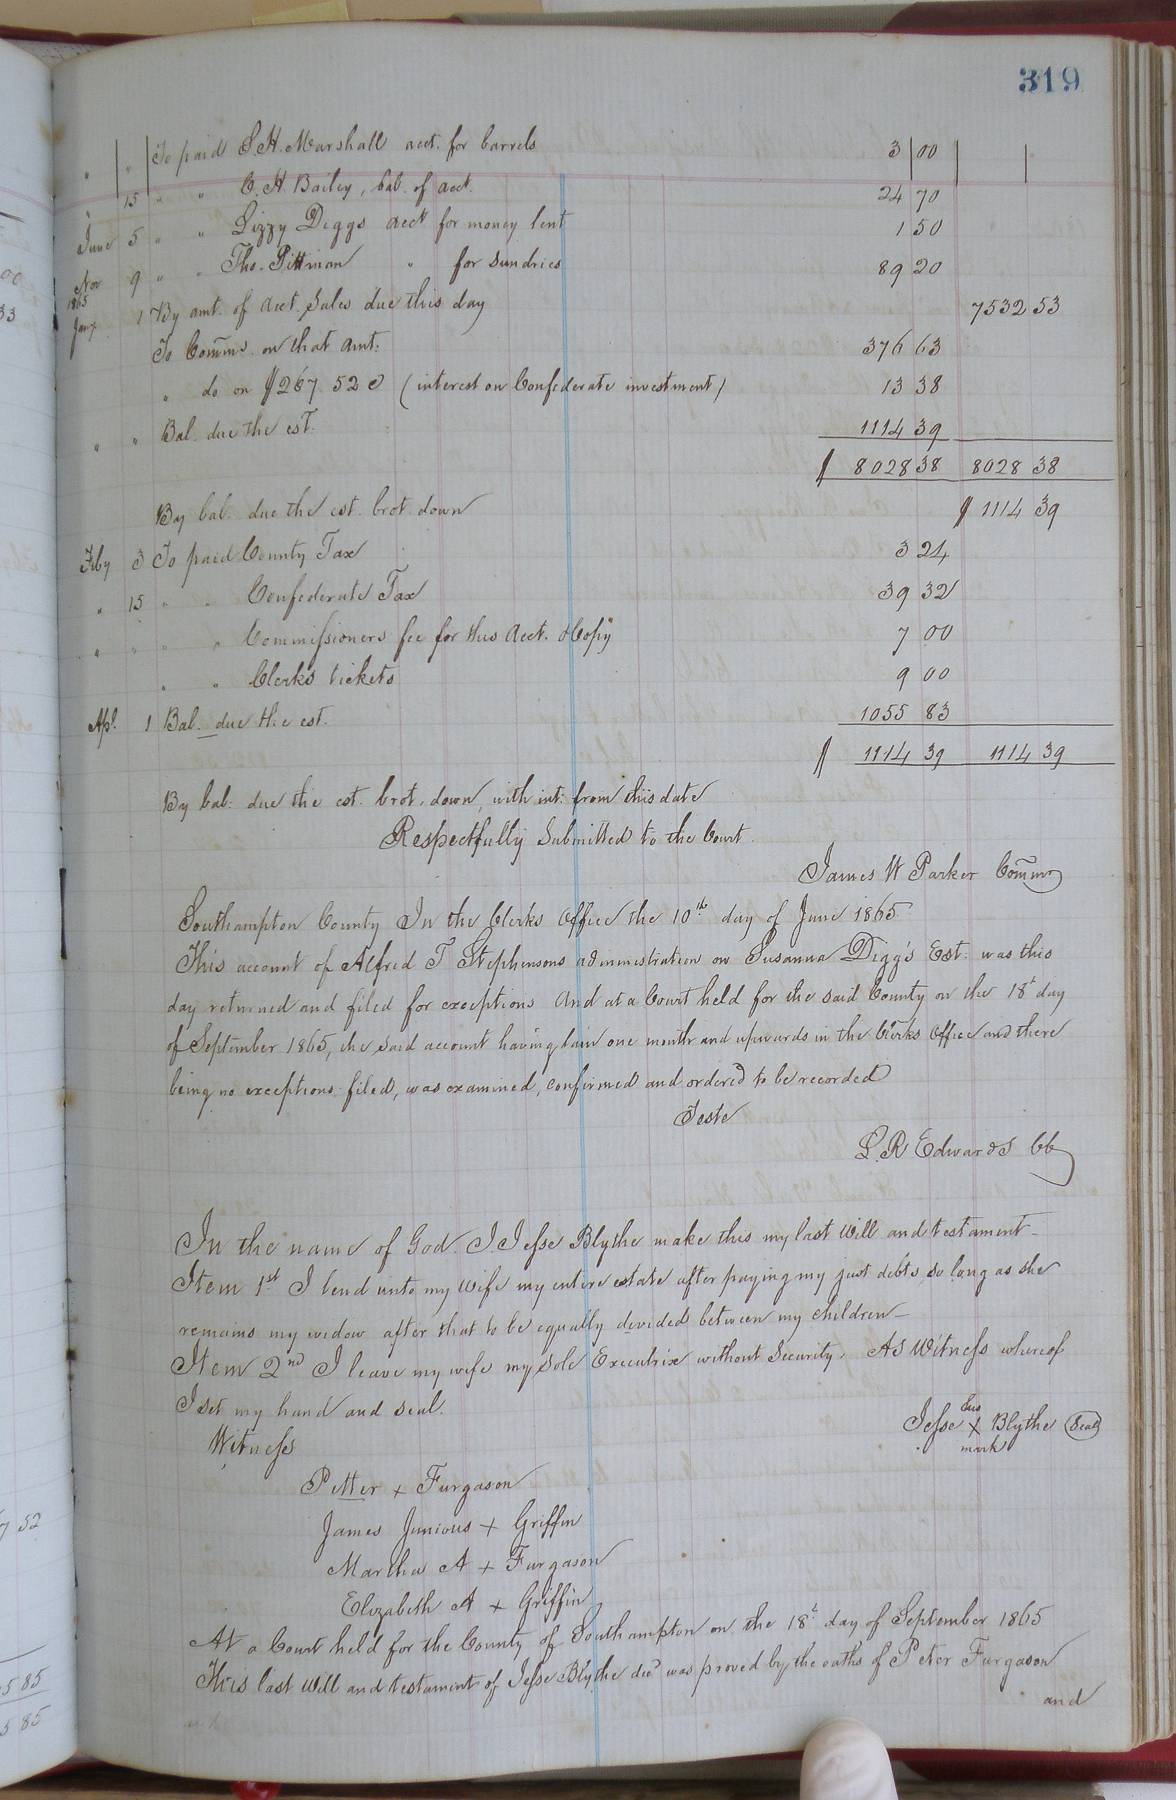 319
" " To paid S. H. Marshall acct. for barrels 3 00
" 15 " " C. H. Bailey, bal. of acct. 24 70
June 5 " " Lizzy Diggs acct for money lent 1 50
Nov 9 " " Tho. Pittman " for sundries 89 20
1865
Jany 1 By amt. of acct. Sales due this day 7532 53
To Comms. on that amt: 376 63
" do on $267.52 c (interest on Confederate investment) 13 38
" " Bal. due the est. 1114 39
$ 8028 38 8028 38
By bal. due the est. brot. down $ 1114 39
Feby 3 To paid County Tax 3 24
" 15 " " Confederate Tax 39 32
" " " " Commissioners fee for this acct. & Copy 7 00
" " Clerks tickets 9 00
Apl. 1 Bal. due the est. 1055 83
$ 1114 39 1114 39
By bal: due the est. brot. down, with int: from this date
Respectfully Submitted to the Court.
James W Parker Commr
Southampton County In the Clerks Office the 10th day of June 1865
This account of Alfred T Stephensons administration on Susanna Digg's Est. was this
day returned and filed for exceptions And at a Court held for the said County on the 18t day
of September 1865, the said account having lain one month and upwards in the Clerks Office and there
being no exceptions filed, was examined, confirmed and ordered to be recorded
Teste
L. R Edwards CC
In the name of God. I Jesse Blythe make this my last will and testament_
Item 1st I lend unto my wife my entire estate after paying my just debts, so long as she
remains my widow after that to be equally divided between my children_
Item 2nd I leave my wife my sole Executrix without Security. As Witness whereof
I set my hand and seal.
his
Jesse X Blythe Seal
mark
Witness
Petter + Furgason
James Junious + Griffin
Martha A + Furgason
Elizabeth A + Griffin
At a Court held for the County of Southampton on the 18t day of September 1865
This last will and testament of Jesse Blythe decd was proved by the oaths of Peter Furgason
and
33
7 52
5 85
5 85